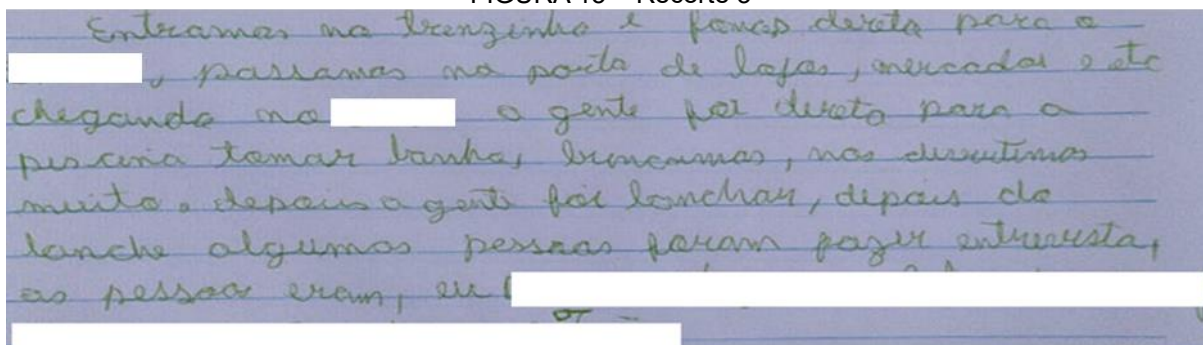 Entramos no trenzinho e fomos direto para o
, passamos na porta de lojas, mercados e etc
chegando no a gente foi direto para a
piscina tomar banho, brincamos, nos divertimos
muito. depois a gente foi lanchar, depois do
lanche algumas pessoas foram fazer entrevista,
as pessoas eram, eu